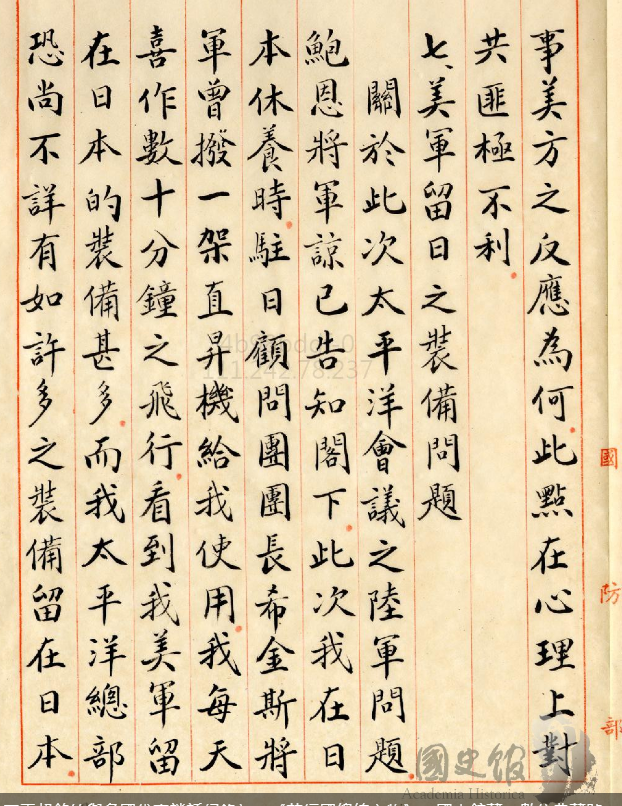 事美方之反應為何此點在心理上對
共匪極不利
七、美軍留日之裝備問題
關於此次太平洋會議之陸軍問題
鮑恩將軍諒已告知閣下此次我在日
本休養時駐日顧問團團長希金斯將
軍曾撥一架直昇機給我使用我每天
喜作數十分鐘之飛行看到我美軍留
在日本的裝備甚多而我太平洋總部
恐尚不詳有如許多之裝備留在日本
國防部
國史館
Academia Historica